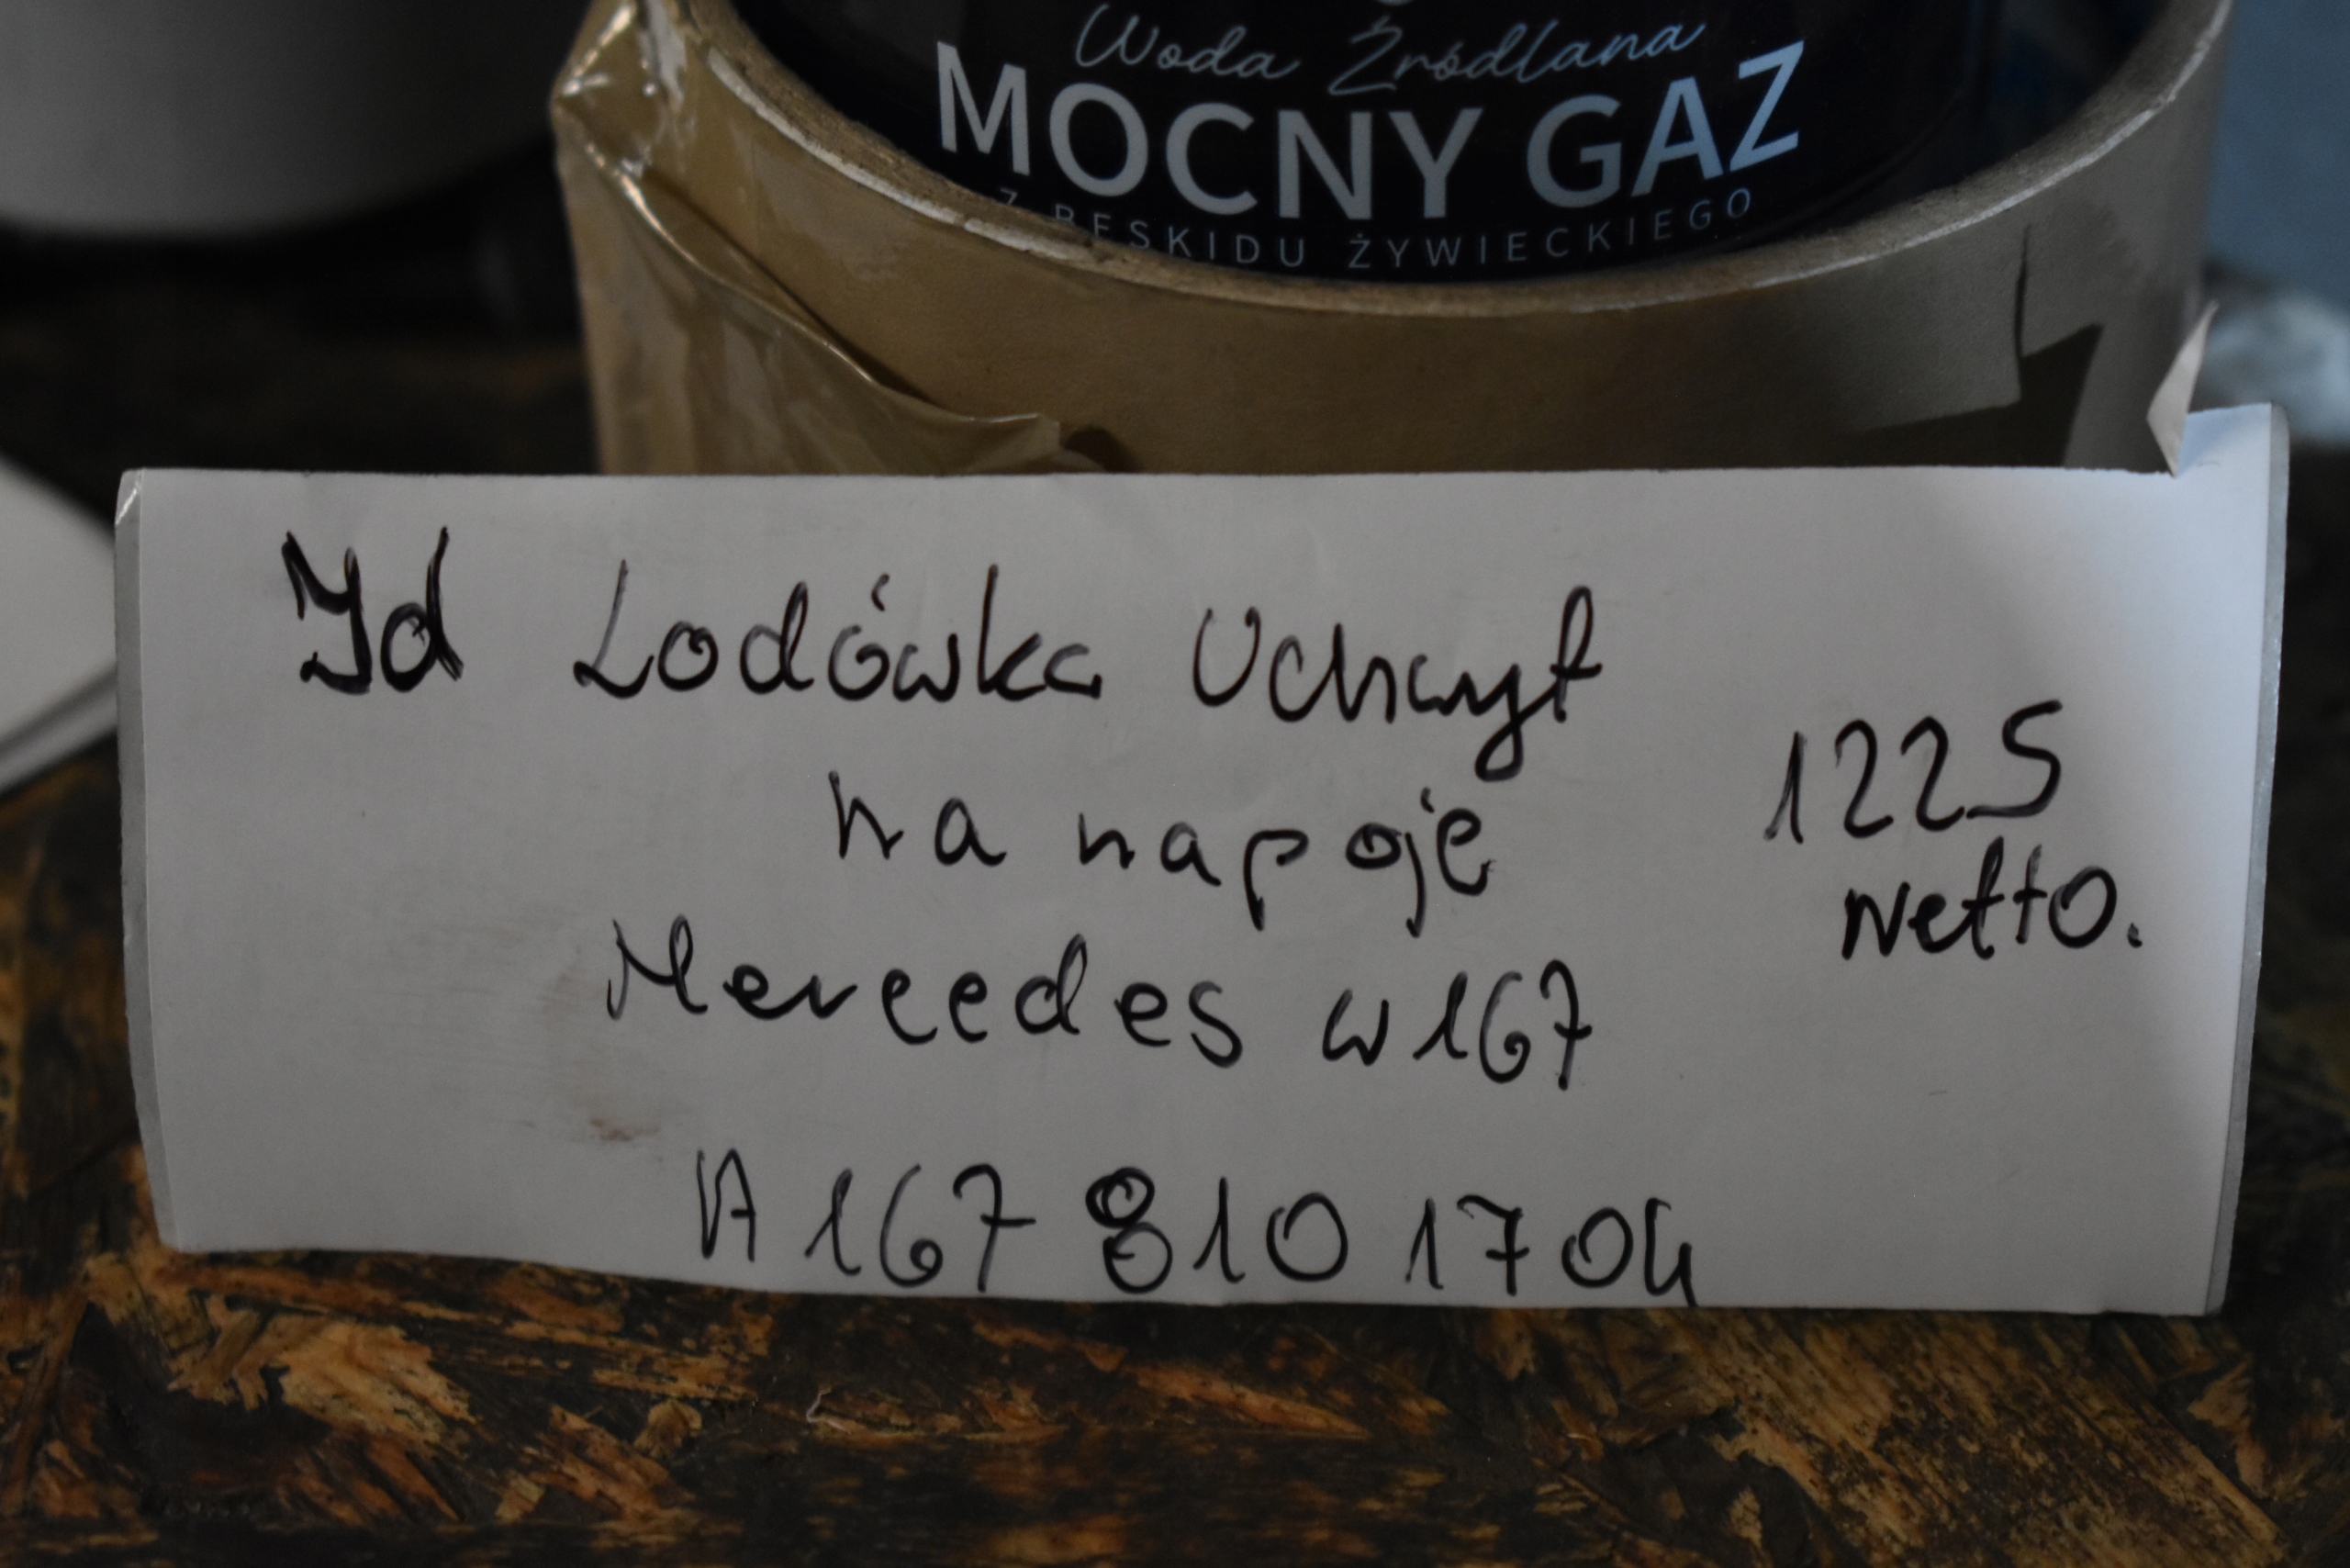 Woda Źródlana
MOCNY GAZ
Z BESKIDU ŻYWIECKIEGO
Id Lodówka Uchwyt
na napoje
1225
netto.
Mercedes w167
A 167 810 17 04